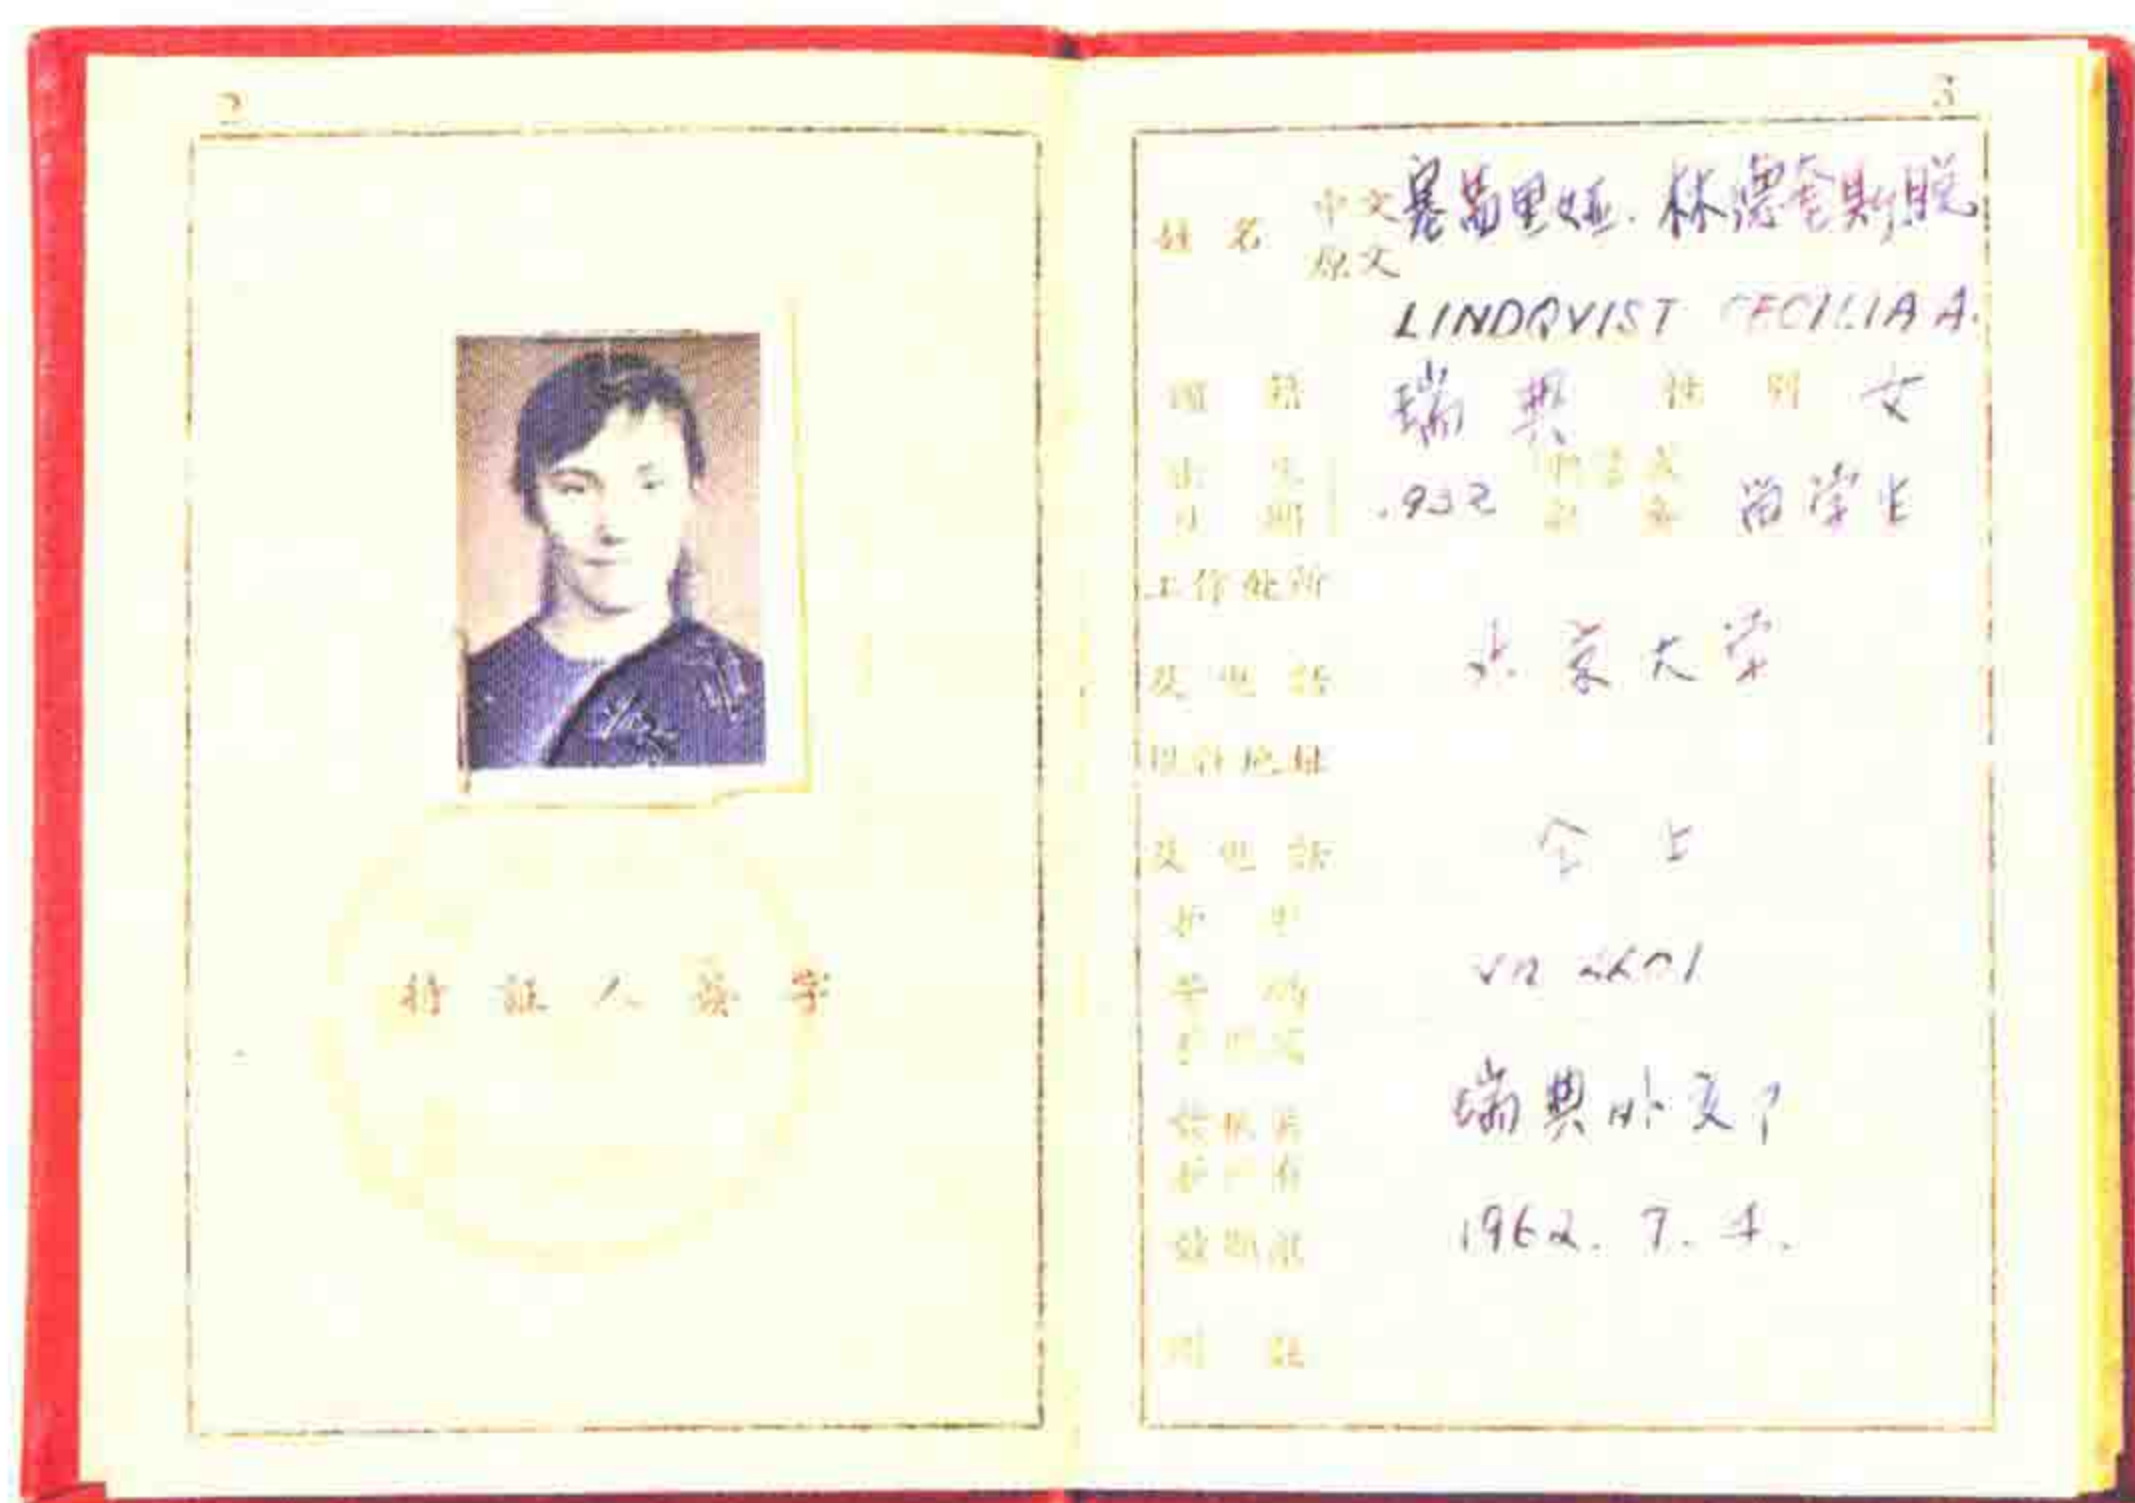 2
持証人簽字
3
姓名 中文 塞茜里娅·林德奎斯脱
原文
LINDQVIST CECILIA A.
国籍 瑞典 性别 女
出生
日期 1932 留学生
工作处所
及电話 北京大学
現在地址
及电話 仝上
护照
号碼
瑞典外交
发机关
护照有
效期限 1962. 7. 4.
附註